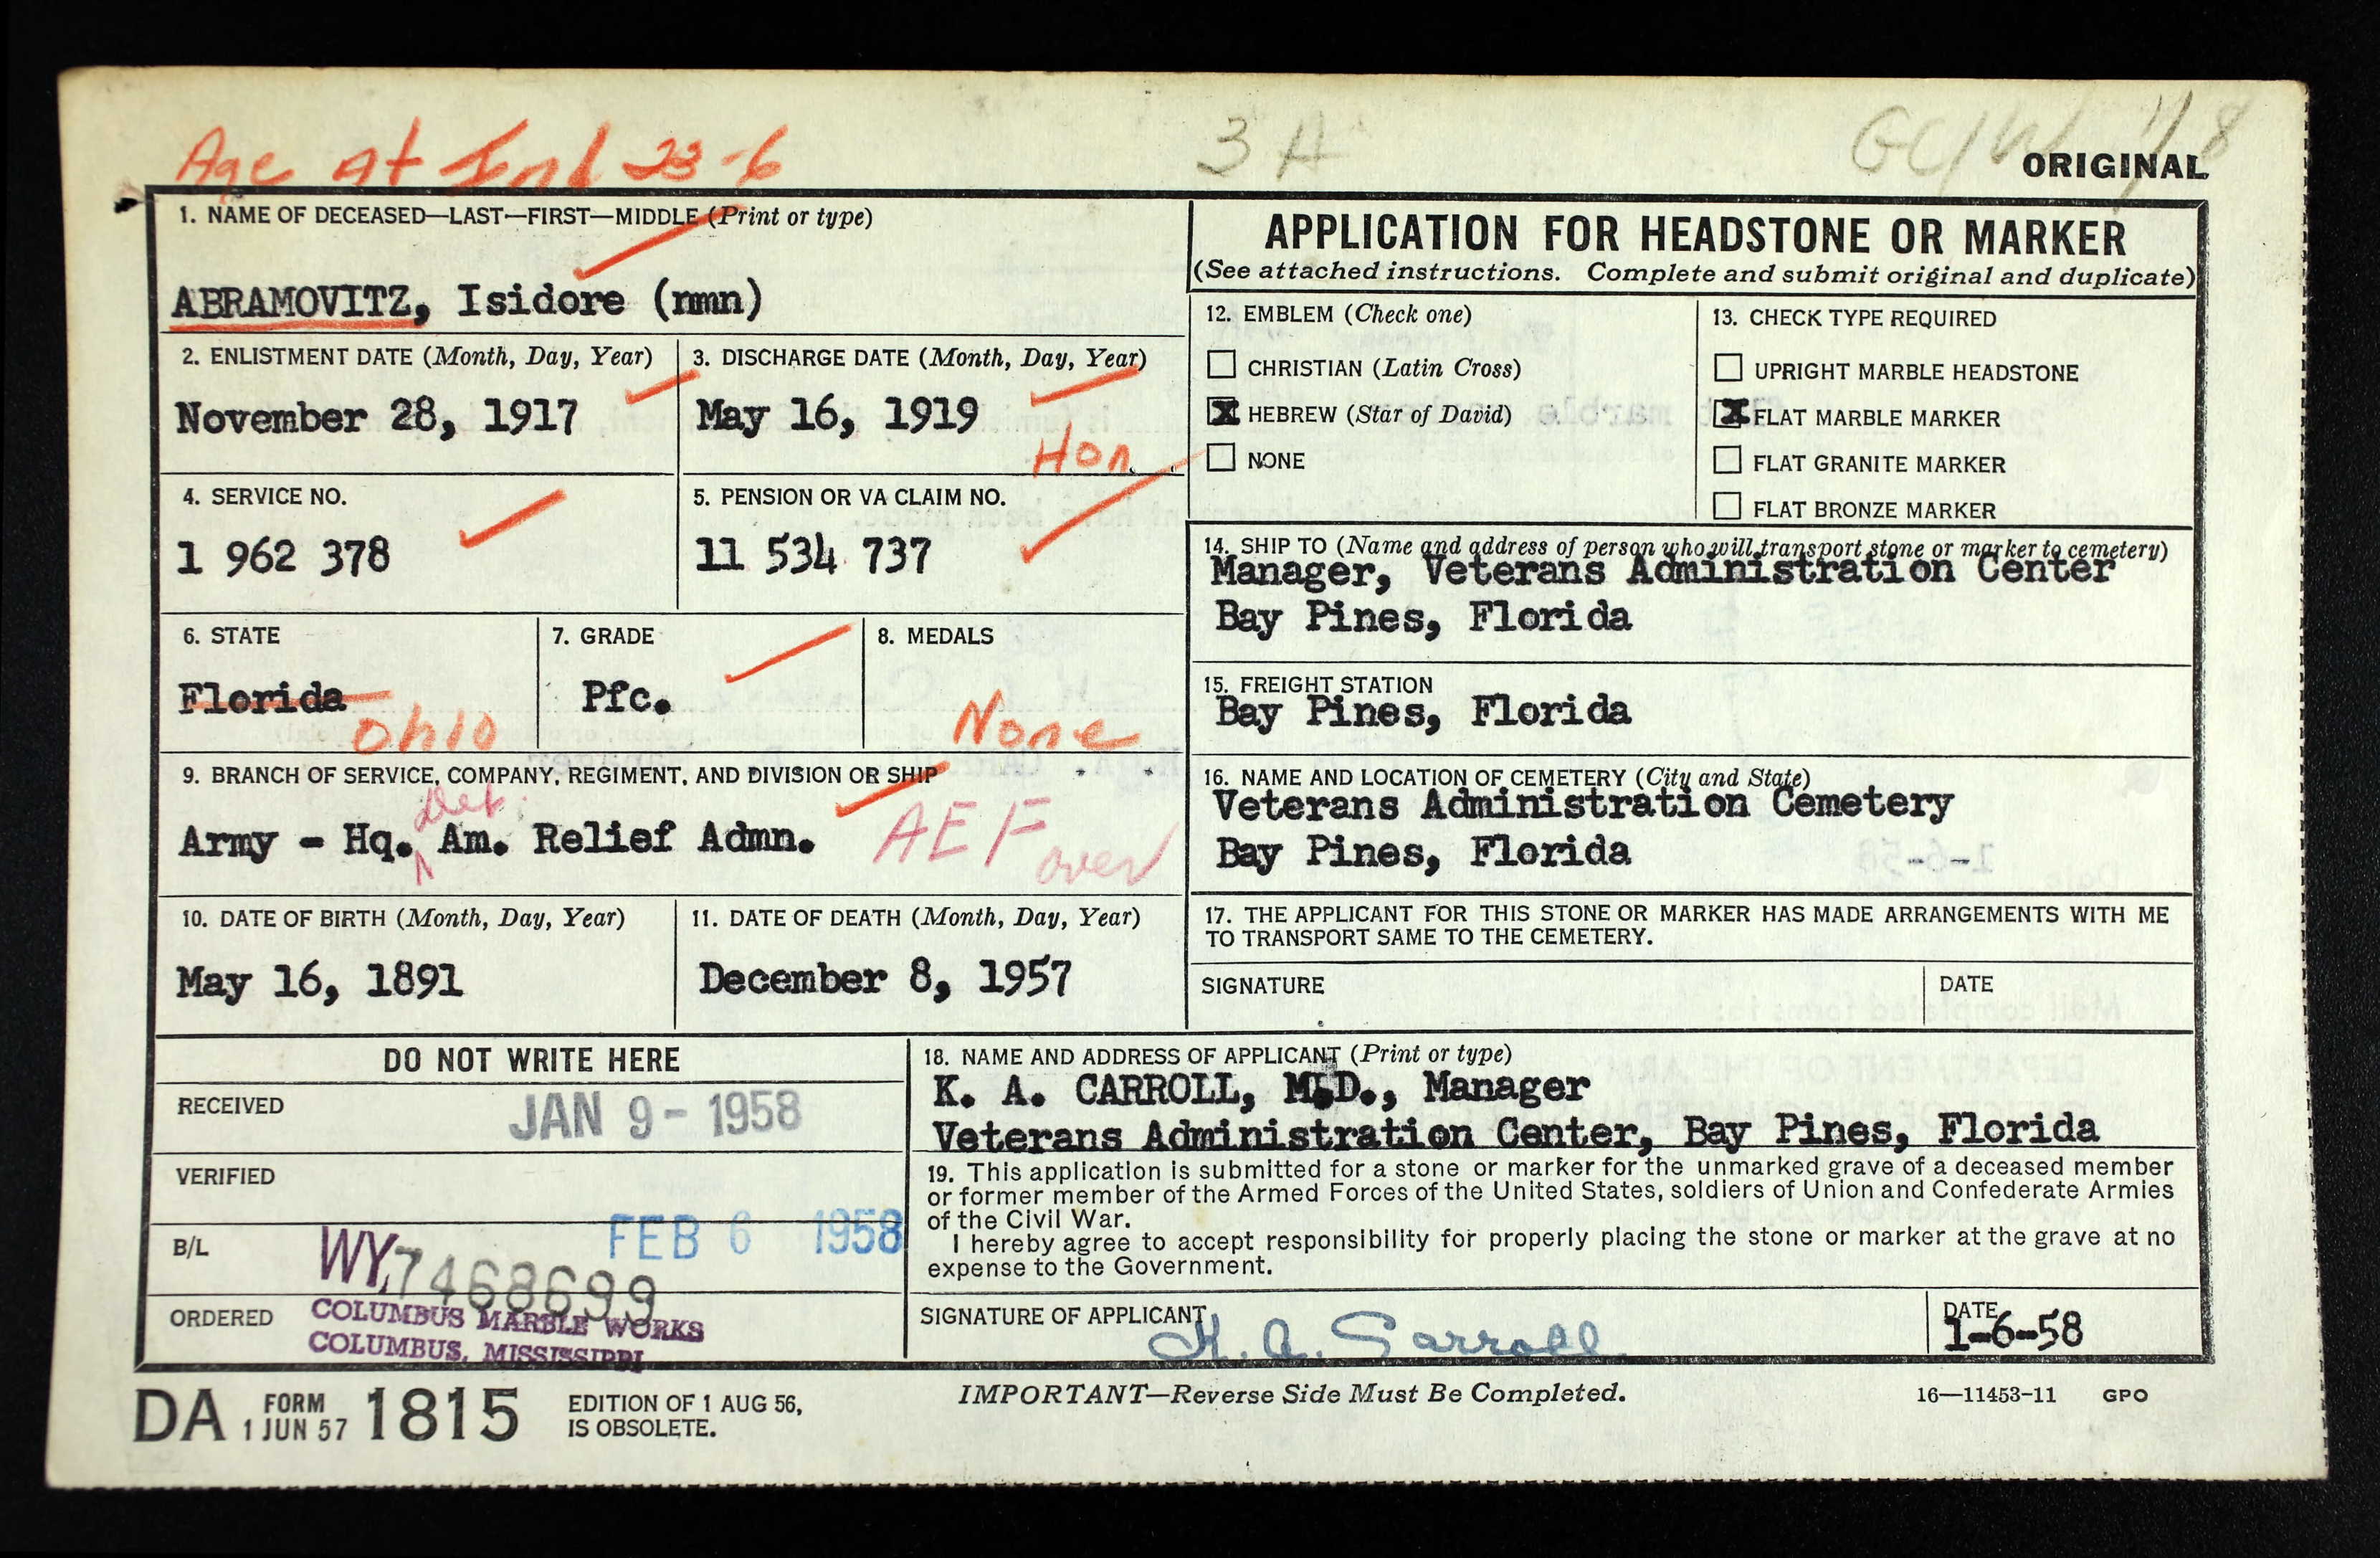 Age At Ind 23-6
3 A
ORIGINAL
1. NAME OF DECEASED—LAST—FIRST—MIDDLE (Print or type)
ABRAMOVITZ, Isidore (nmn)
2. ENLISTMENT DATE (Month, Day, Year)
November 28, 1917
3. DISCHARGE DATE (Month, Day, Year)
May 16, 1919
Hon.
4. SERVICE NO.
1 962 378
5. PENSION OR VA CLAIM NO.
11 534 737
6. STATE
Florida
Ohio
7. GRADE
Pfc.
8. MEDALS
None
9. BRANCH OF SERVICE, COMPANY, REGIMENT, AND DIVISION OR SHIP
Det.
Army - Hq. Am. Relief Admn.
AEF
over
10. DATE OF BIRTH (Month, Day, Year)
May 16, 1891
11. DATE OF DEATH (Month, Day, Year)
December 8, 1957
APPLICATION FOR HEADSTONE OR MARKER
(See attached instructions. Complete and submit original and duplicate)
12. EMBLEM (Check one)
CHRISTIAN (Latin Cross)
X HEBREW (Star of David)
NONE
13. CHECK TYPE REQUIRED
UPRIGHT MARBLE HEADSTONE
X FLAT MARBLE MARKER
FLAT GRANITE MARKER
FLAT BRONZE MARKER
14. SHIP TO (Name and address of person who will transport stone or marker to cemetery)
Manager, Veterans Administration Center
Bay Pines, Florida
15. FREIGHT STATION
Bay Pines, Florida
16. NAME AND LOCATION OF CEMETERY (City and State)
Veterans Administration Cemetery
Bay Pines, Florida
17. THE APPLICANT FOR THIS STONE OR MARKER HAS MADE ARRANGEMENTS WITH ME
TO TRANSPORT SAME TO THE CEMETERY.
SIGNATURE
DATE
DO NOT WRITE HERE
RECEIVED
JAN 9 - 1958
VERIFIED
FEB 6 1958
B/L
WY,7468699
ORDERED
COLUMBUS MARBLE WORKS
COLUMBUS, MISSISSIPPI
18. NAME AND ADDRESS OF APPLICANT (Print or type)
K. A. CARROLL, M.D., Manager
Veterans Administration Center, Bay Pines, Florida
19. This application is submitted for a stone or marker for the unmarked grave of a deceased member
or former member of the Armed Forces of the United States, soldiers of Union and Confederate Armies
of the Civil War.
I hereby agree to accept responsibility for properly placing the stone or marker at the grave at no
expense to the Government.
SIGNATURE OF APPLICANT
K. A. Carroll
DATE
1-6-58
DA FORM 1 JUN 57 1815
EDITION OF 1 AUG 56,
IS OBSOLETE.
IMPORTANT—Reverse Side Must Be Completed.
16—11453-11 GPO